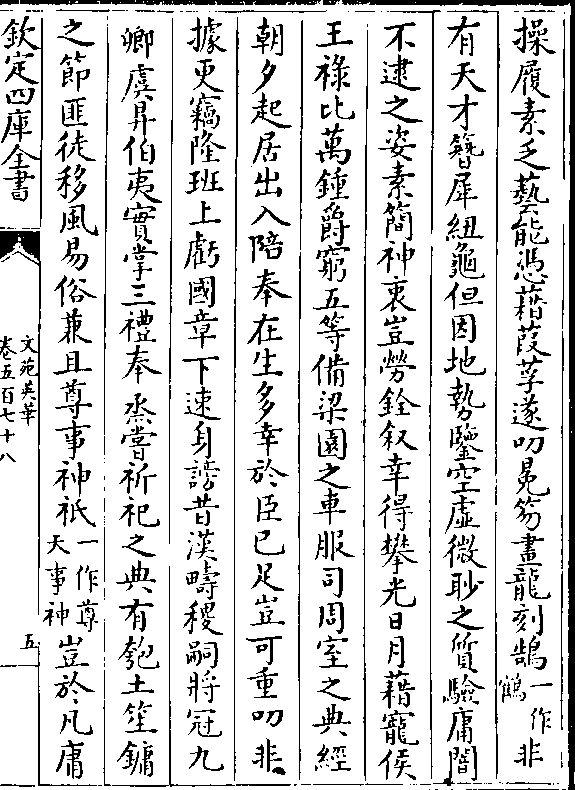 操履素乏藝能憑藉葭莩遂叨冕笏畫龍刻鵠一作鶴非
有天才簪犀紐龜但因地勢鑒空虛微眇之質驗庸闇
不逮之姿素簡神衷豈勞銓叙幸得攀光日月藉寵侯
王祿比萬鍾爵窮五等備梁園之車服司周室之典經
朝夕起居出入陪奉在生多幸於臣已足豈可重叨非
據更竊隆班上虧國章下速身謗昔漢疇稷嗣將冠九
卿虞昇伯夷實掌三禮奉烝嘗祈祀之典有匏土笙鏞
之節匪徒移風易俗兼且尊事神祇一作尊天事神豈於凡庸
欽定四庫全書
文苑英華
卷五百七十八
五